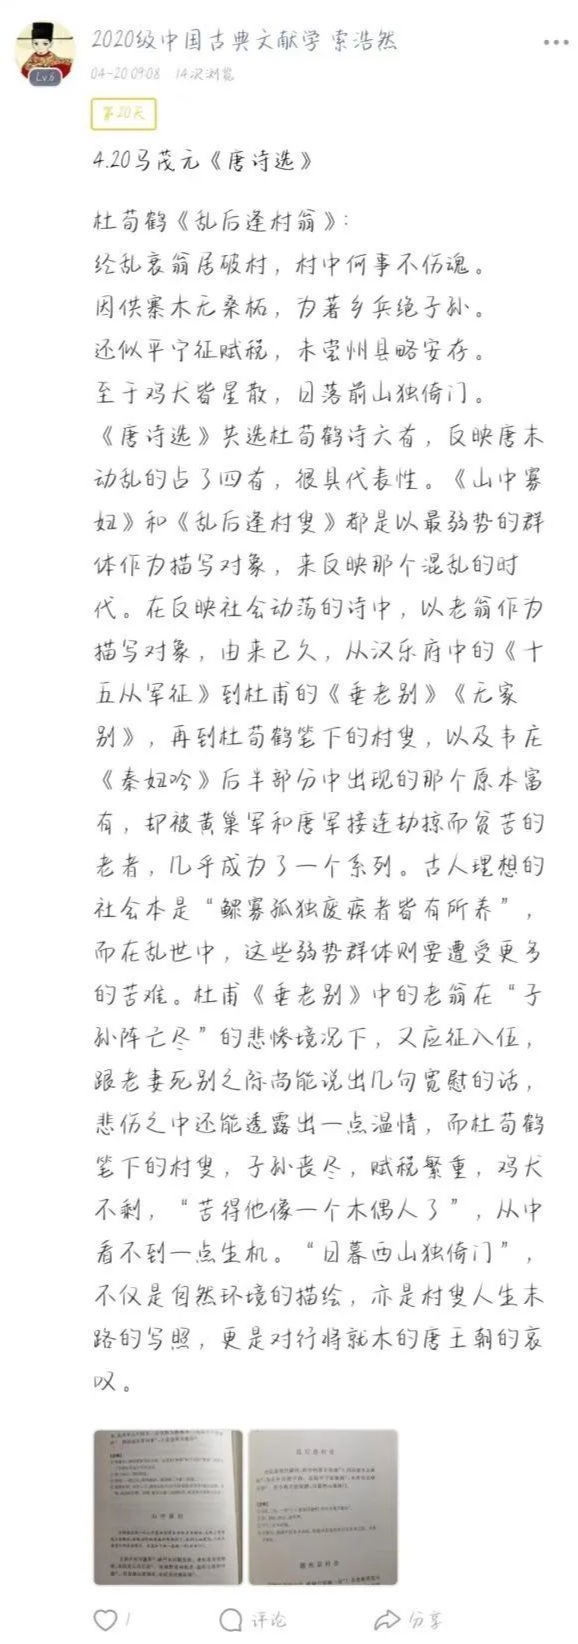 2020级中国古典文献学 索浩然
Lv.6
04-20 09:08 14次浏览
第20天
4.20马茂元《唐诗选》
杜荀鹤《乱后逢村翁》：
经乱衰翁居破村，村中何事不伤魂。
因供寨木无桑柘，为著乡兵绝子孙。
还似平宁征赋税，未尝州县略安存。
至于鸡犬皆星散，日落前山独倚门。
《唐诗选》共选杜荀鹤诗六首，反映唐末
动乱的占了四首，很具代表性。《山中寡
妇》和《乱后逢村叟》都是以最弱势的群
体作为描写对象，来反映那个混乱的时
代。在反映社会动荡的诗中，以老翁作为
描写对象，由来已久，从汉乐府中的《十
五从军征》到杜甫的《垂老别》《无家
别》，再到杜荀鹤笔下的村叟，以及韦庄
《秦妇吟》后半部分中出现的那个原本富
有，却被黄巢军和唐军接连劫掠而贫苦的
老者，几乎成为了一个系列。古人理想的
社会本是“鳏寡孤独废疾者皆有所养”，
而在乱世中，这些弱势群体则要遭受更多
的苦难。杜甫《垂老别》中的老翁在“子
孙阵亡尽”的悲惨境况下，又应征入伍，
跟老妻死别之际尚能说出几句宽慰的话，
悲伤之中还能透露出一点温情，而杜荀鹤
笔下的村叟，子孙丧尽，赋税繁重，鸡犬
不剩，“苦得他像一个木偶人了”，从中
看不到一点生机。“日暮西山独倚门”，
不仅是自然环境的描绘，亦是村叟人生末
路的写照，更是对行将就木的唐王朝的哀
叹。
山中寡妇
乱后逢村叟
1 评论 分享